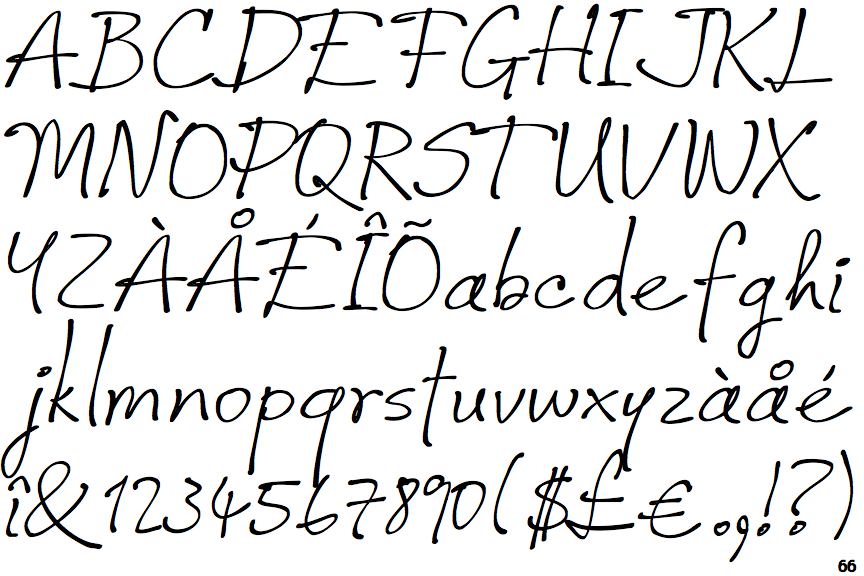 ABCDEFGHIJKL
MNOPQRSTUVWX
YZÀÅÉÎÕabcdefghi
jklmnopqrstuvwxyzàåé
î&1234567890($£€.,!?)
66